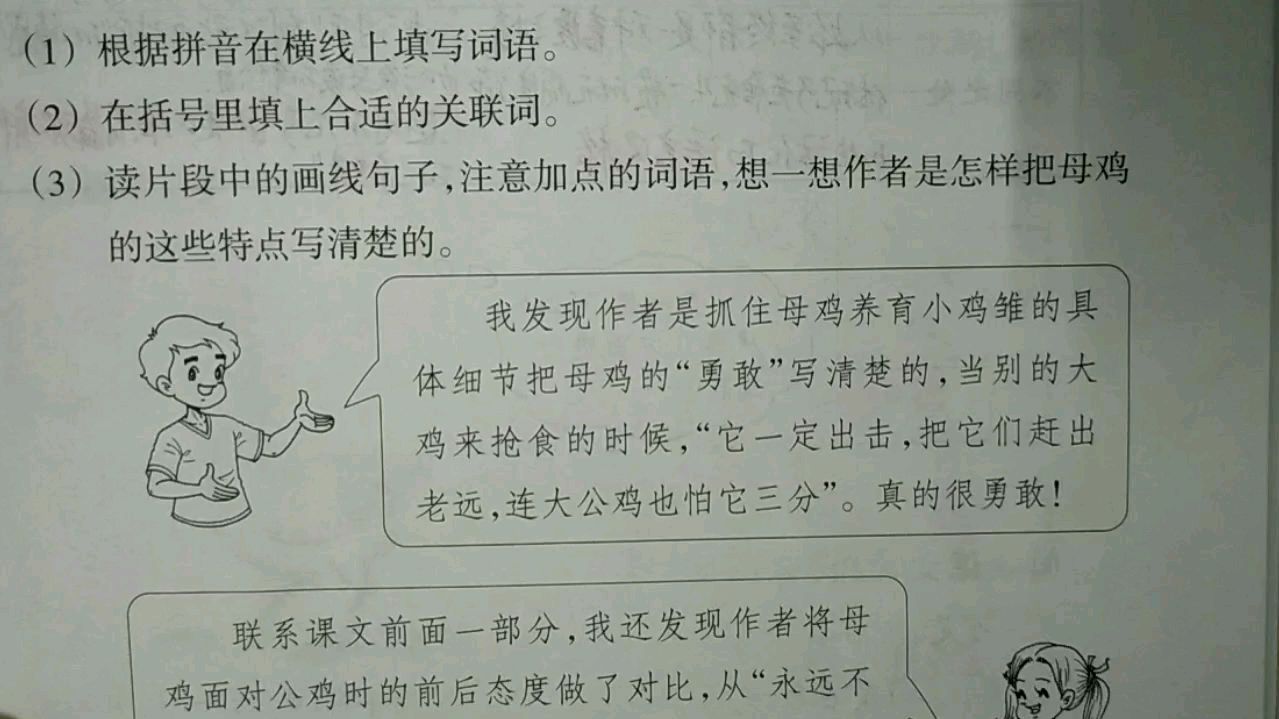 (1) 根据拼音在横线上填写词语。
(2) 在括号里填上合适的关联词。
(3) 读片段中的画线句子,注意加点的词语,想一想作者是怎样把母鸡
的这些特点写清楚的。
我发现作者是抓住母鸡养育小鸡雏的具
体细节把母鸡的“勇敢”写清楚的,当别的大
鸡来抢食的时候,“它一定出击,把它们赶出
老远,连大公鸡也怕它三分”。真的很勇敢!
联系课文前面一部分,我还发现作者将母
鸡面对公鸡时的前后态度做了对比,从“永远不